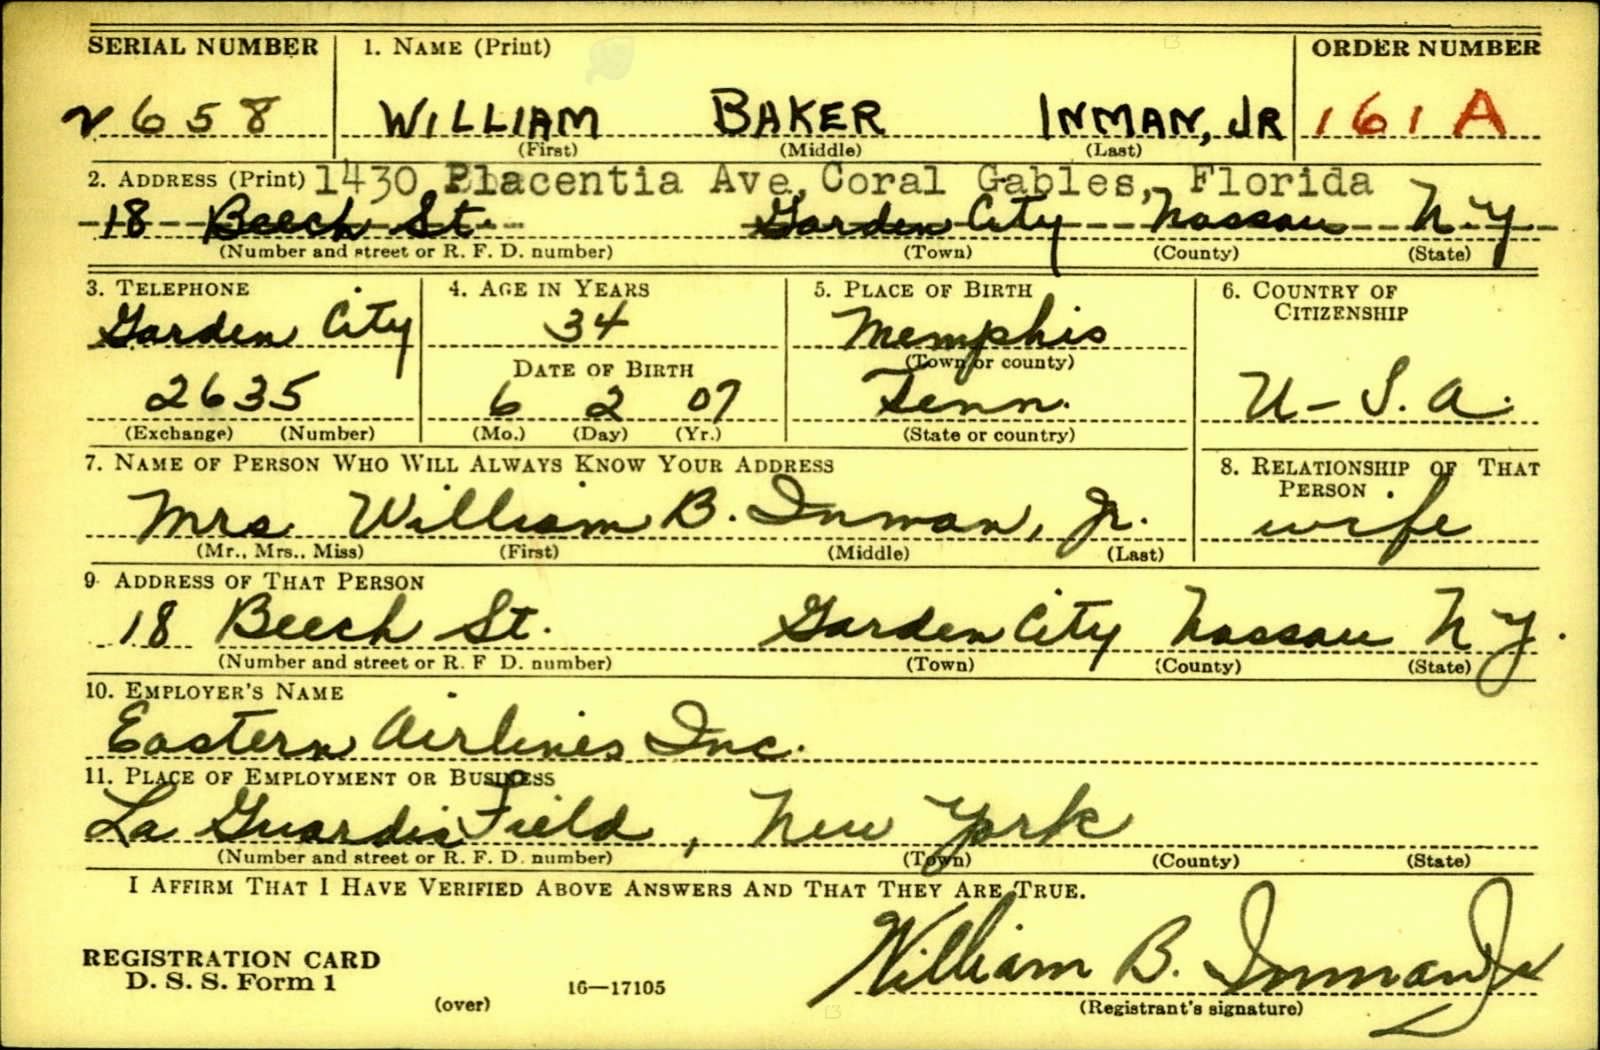 SERIAL NUMBER 1. NAME (Print) ORDER NUMBER
2658 WILLIAM BAKER INMAN, JR 161A
(First) (Middle) (Last)
2. ADDRESS (Print) 1430 Placentia Ave, Coral Gables, Florida
18 Beech St. Garden City Nassau N.Y
(Number and street or R. F. D. number) (Town) (County) (State)
3. TELEPHONE 4. AGE IN YEARS 5. PLACE OF BIRTH 6. COUNTRY OF
CITIZENSHIP
Garden City 34 Memphis
(Town or county)
DATE OF BIRTH
2635 6 2 07 Tenn. U-S.A.
(Exchange) (Number) (Mo.) (Day) (Yr.) (State or country)
7. NAME OF PERSON WHO WILL ALWAYS KNOW YOUR ADDRESS 8. RELATIONSHIP OF THAT
PERSON
Mrs William B. Inman, Jr. wife
(Mr., Mrs., Miss) (First) (Middle) (Last)
9 ADDRESS OF THAT PERSON
18 Beech St. Garden City Nassau N Y.
(Number and street or R. F D. number) (Town) (County) (State)
10. EMPLOYER'S NAME
Eastern Airlines Inc.
11. PLACE OF EMPLOYMENT OR BUSINESS
La Guardia Field, New York
(Number and street or R. F. D. number) (Town) (County) (State)
I AFFIRM THAT I HAVE VERIFIED ABOVE ANSWERS AND THAT THEY ARE TRUE.
William B. Inman Jr
REGISTRATION CARD
D. S. S. Form 1 16—17105
(over) (Registrant's signature)